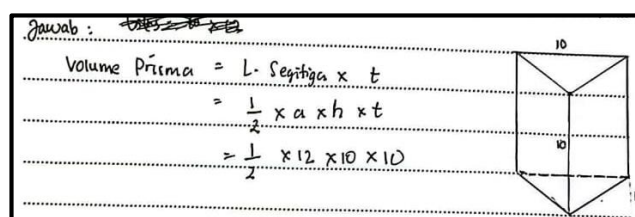 Jawab :
Volume Prisma = L. Segitiga x t
= 1/2 x a x h x t
= 1/2 x 12 x 10 x 10
10
10